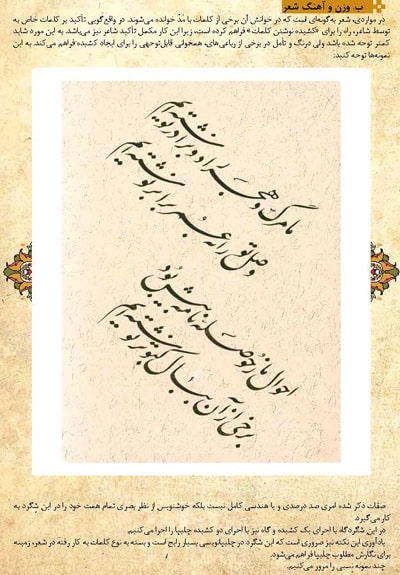 ب. وزن و آهنگ شعر
در مواردی، شعر به‌گونه‌ای است که در خوانش آن برخی از کلمات با مَدّ خوانده می‌شوند. در واقع‌گویی تأکید بر کلمات خاص به
توسط شاعر، راه را برای «کشیده نوشتن کلمات» فراهم کرده است، زیرا این کار مکمل تأکید شاعر نیز می‌باشد. به این مورد شاید
کمتر توجه شده باشد ولی درنگ و تأمل در برخی از رباعی‌های، همخوانی قابل‌توجهی را برای ایجاد کشیده فراهم می‌کند. به این
نمونه‌ها توجه کنید:
ما مرگ و هجر را دو برادر نوشته‌ایم
وصل تو را به عمر برابر نوشته‌ایم
احوال ما ز حوصله نامه بیش بود
برخی از آن به بال کبوتر نوشته‌ایم
صفات ذکر شده امری صد درصدی و یا هندسی کامل نیست بلکه خوشنویس از نظر بصری تمام همت خود را در این شگرد به
کار می‌گیرد.
در این شگرد گاه با اجرای یک کشیده و گاه نیز با اجرای دو کشیده چلیپا را اجرا می‌کنیم.
یادآوری این نکته نیز ضروری است که این شگرد در چلیپانویسی بسیار رایج است و بسته به نوع کلمات به کار رفته در شعر، زمینه
برای نگارش مطلوب چلیپا فراهم می‌شود.
چند نمونه نسبی را مرور می‌کنیم.